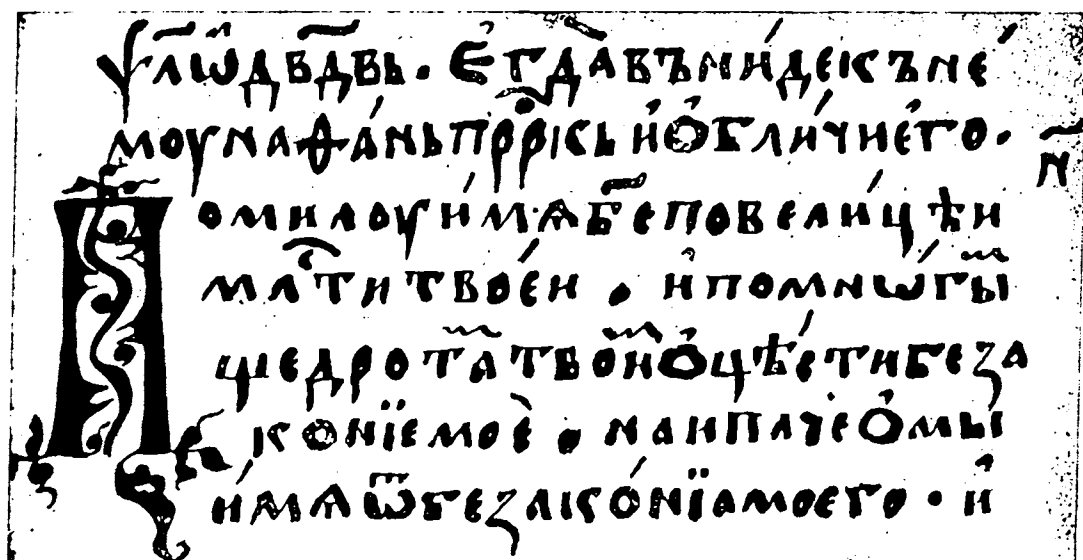 ѱл҃ѡ̑двд҃вь. Є҆гда̀въни́деісъне́
моунаѳа́ньпрⷪ҇рісьи҆ѻ҆бли́чиє҆го.
н҃
помилоуи́мѧб҃еповели́цѣи
мл҇титвоє́и. и҆помнѡ́гы
щедрота̑твои̑ѻ҆цѣ́стибеза
конїемоѐ. наипачеѻ҆мы́
и҆́мѧѿбезако́нїамоего. и҆